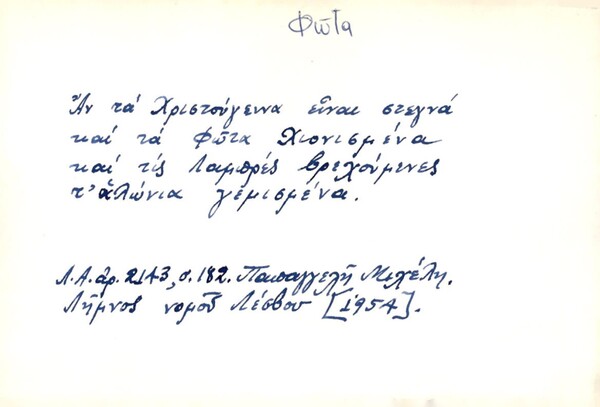 Φῶτα
Ἄν τά Χριστούγεννα εἶναι στεγνά
καί τά Φῶτα Χιονισμένα
καί τίς Λαμπρές βρεχούμενες
τ' ἁλώνια γεμισμένα.
Λ.Α. ἀρ. 2143, σ. 182. Παπαγγελῆ Μιχέλη.
Λῆμνος νομοῦ Λέσβου [1954].